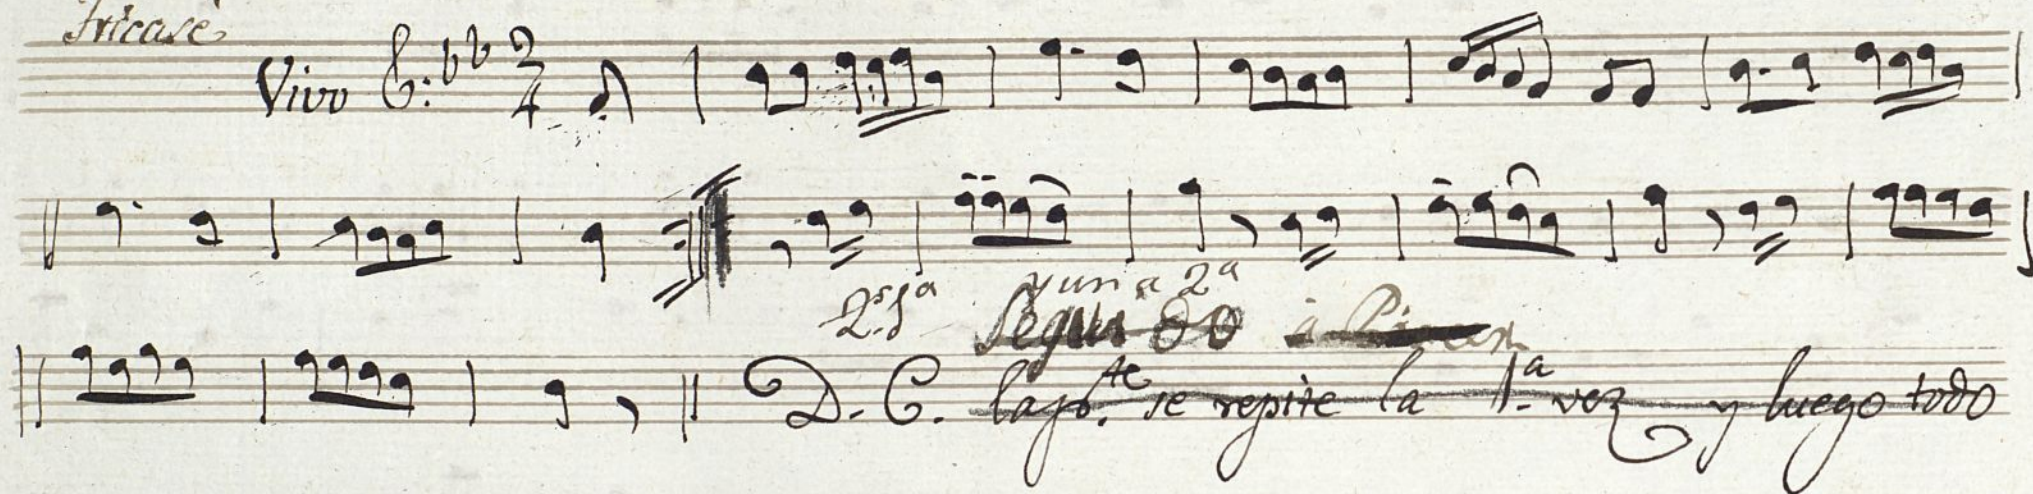 Fricasé
Vivo 2 4
2.s 1a y una 2a
Segui do a
D. C. la pte. se repite la 1a vez y luego todo